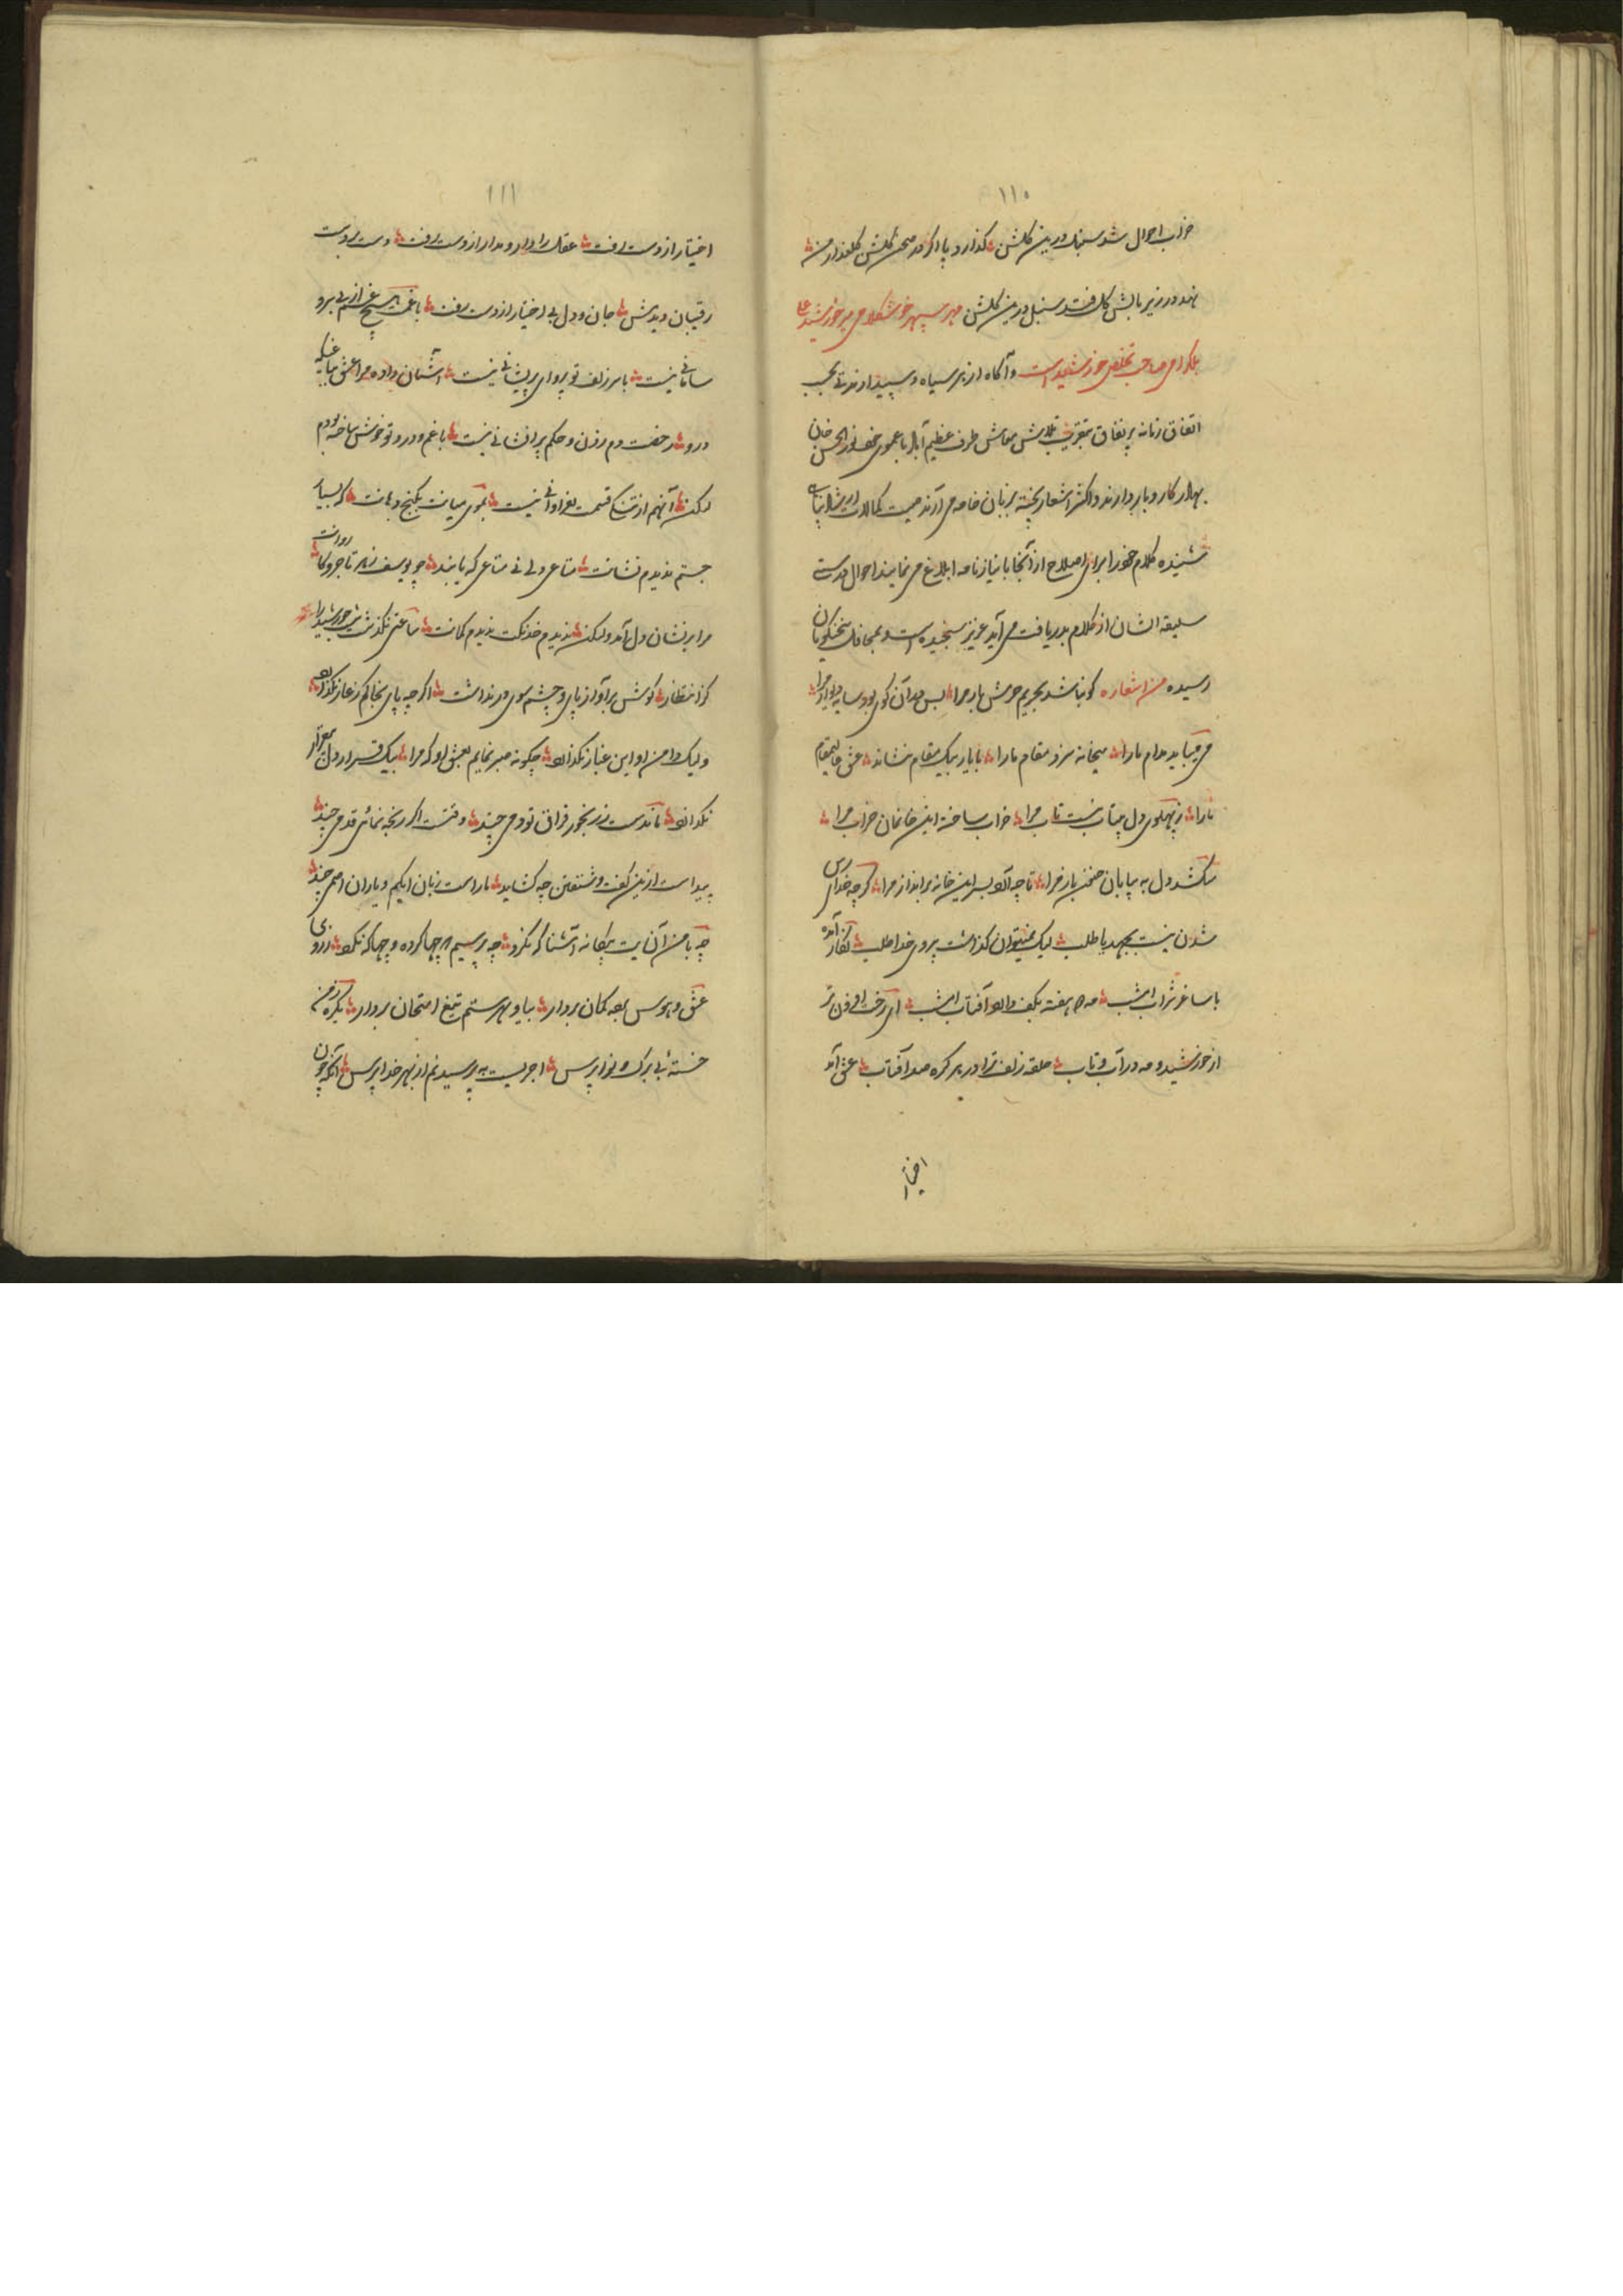 ۱۱۰
خراب احوال شد سنبل درین گلشن گذارد پا اگر در صحن گلشن گلعذار من
نهد در زیر بالش گل فتد سنبل درین گلشن مهر سپهر خوشکلامی میر خورشید علی
بلگرامی صاحب تخلص خورشید است و آگاه از هر سیاه و سپید از مدتی بحسب
اتفاق زمانه پر نفاق بتقریب تلاش معاش طرف عظیم آباد با عموی خود نور الحسن خان
بهادر کار و بار دارند و اکثر اشعار پخته بر زبان خامه می آرند صیت کمالات
شنیده کلام خود را برای اصلاح از آنجا با نیاز نامه ابلاغ می نمایند احوال درستی
سلیقه ایشان از کلام بدریافت می آید عزیز سنجیده است و بمحافل سخنگویان
رسیده من اشعاره گو نباشد بحریم حرمش بار مرا بس بود آن کوی بود سایه دیوار مرا
می باید مدام ما را میخانه سزد مقام ما را با یار بیک مقام بنشاند عشق
ما را ز پهلوی دل بیتاب نیست تاب مرا خراب ساخته این خانمان خراب مرا
میکشد دل به بیابان جنون باز مرا تا چه آرد بسر این خانه برانداز مرا گرچه خدا رس
شدن نیست بجهد یا طلب لیک نمیتوان گذاشت پیروی خدا طلب نگار آمد
با ساغر شراب امشب مه دو هفته بکف دارد آفتاب امشب ای رخت افزون تر
از خورشید و مه در آب و تاب حلقه زلف ترا در بر گره صد آفتاب عشق آمد
اختیار
۱۱۱
اختیار از دست رفت عقل را دارو مدار از دست رفت دست بر دست
رقیبان دیدمش جان و دل بی اختیار از دست رفت با غمت هیچ غم از بی سر و
سامانی نیست با سر زلف تو پروای پریشانی نیست آشیان داده مرا عشق بباغیکه
درو رخصت دم زدن و حکم پر افشانی نیست با غم و درد تو خوش ساخته بودم
لیکن آنهم از قسمت بفراوانی نیست بموی میانت بکنج دهانت که بسیار
جستم ندیدم نشانت متاعی دلی نی متاعی که یابند چو یوسف ز هر تاجر و کاروانت
مرا بر نشان دل آمد ولیکن ندیدم خدنگت ندیدم کمانت ساعتی نگذشت بر خورشید را
کز انتظار گوش بر آواز پای و چشم سوی در نداشت اگرچه پای بخاکم ز عار نگذارد
ولیک دامن او این غبار نگذارد چگونه صبر نمایم بعشق او که مرا بیک قرار دل بیقرار
نگذارد ماندست ز رنجور فراق تو دمی چند وقتست اگر رنجه نمائی قدمی چند
پیداست ازین گفت و شنفتن چه گشاید ما راست زبان ابکم و یاران اصمی چند
چه با من آن بت بیگانه آشنا که نکرد چه پرسیم چها کرده و چها که نکرد
عشق و هوس بعد گمان بردار بیا و بهر ستم تیغ امتحان بردار یکره ز من
خسته بی برگ و نوا پرس اجریست به پرسیدنم از بهر خدا پرس آنکه چون